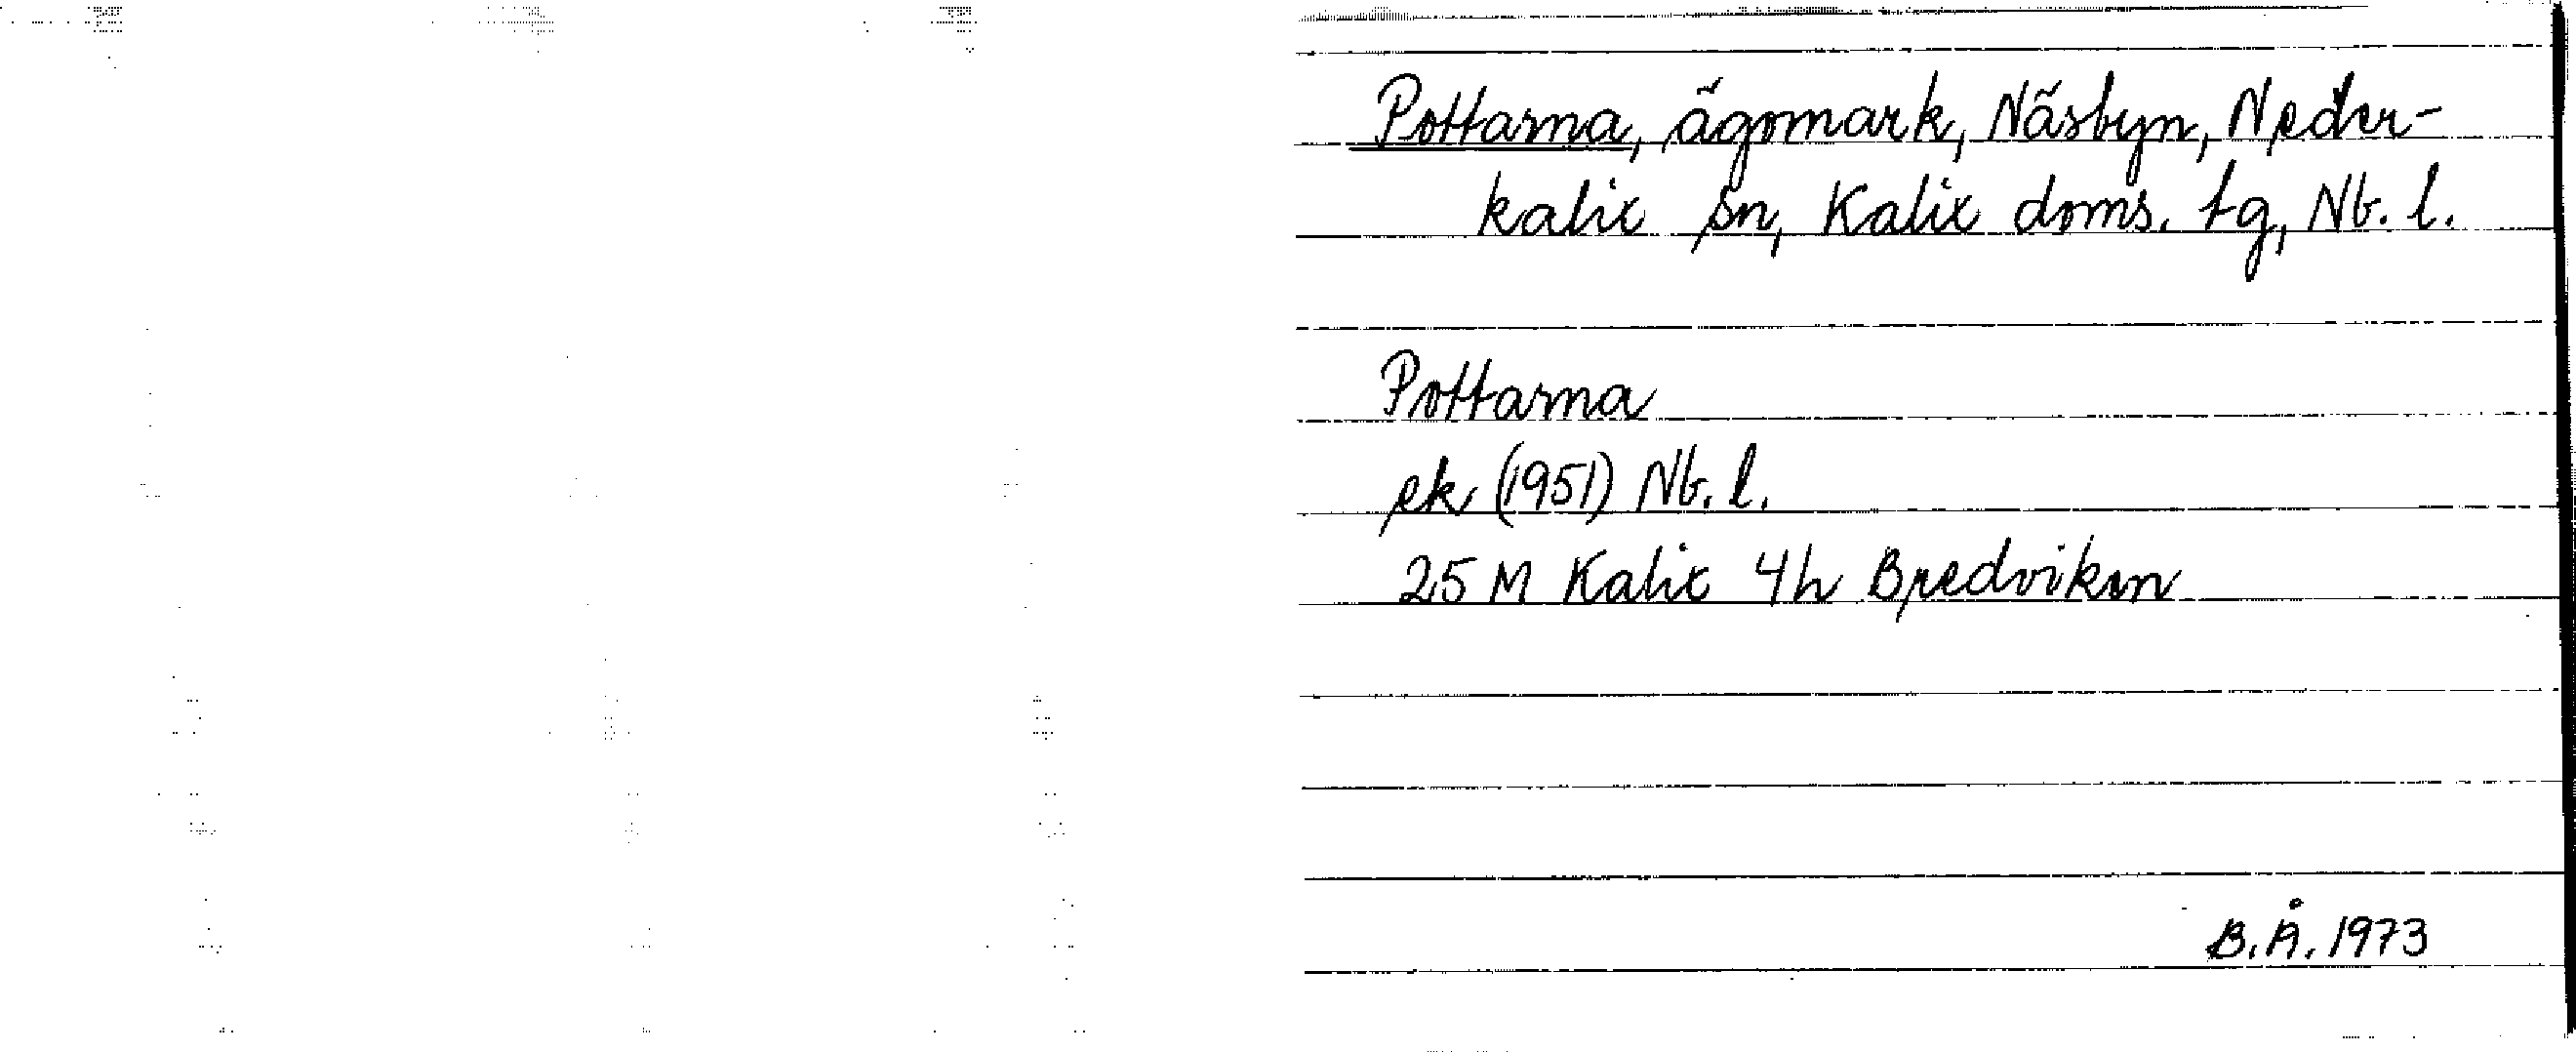 Pottarna, ägomark, Näsbyn, Neder-
kalix sn, Kalix doms. tg, Nb. l.
Pottarna
ek (1951) Nb. l.
25 M Kalix 4h Bredviken
B.Å. 1973